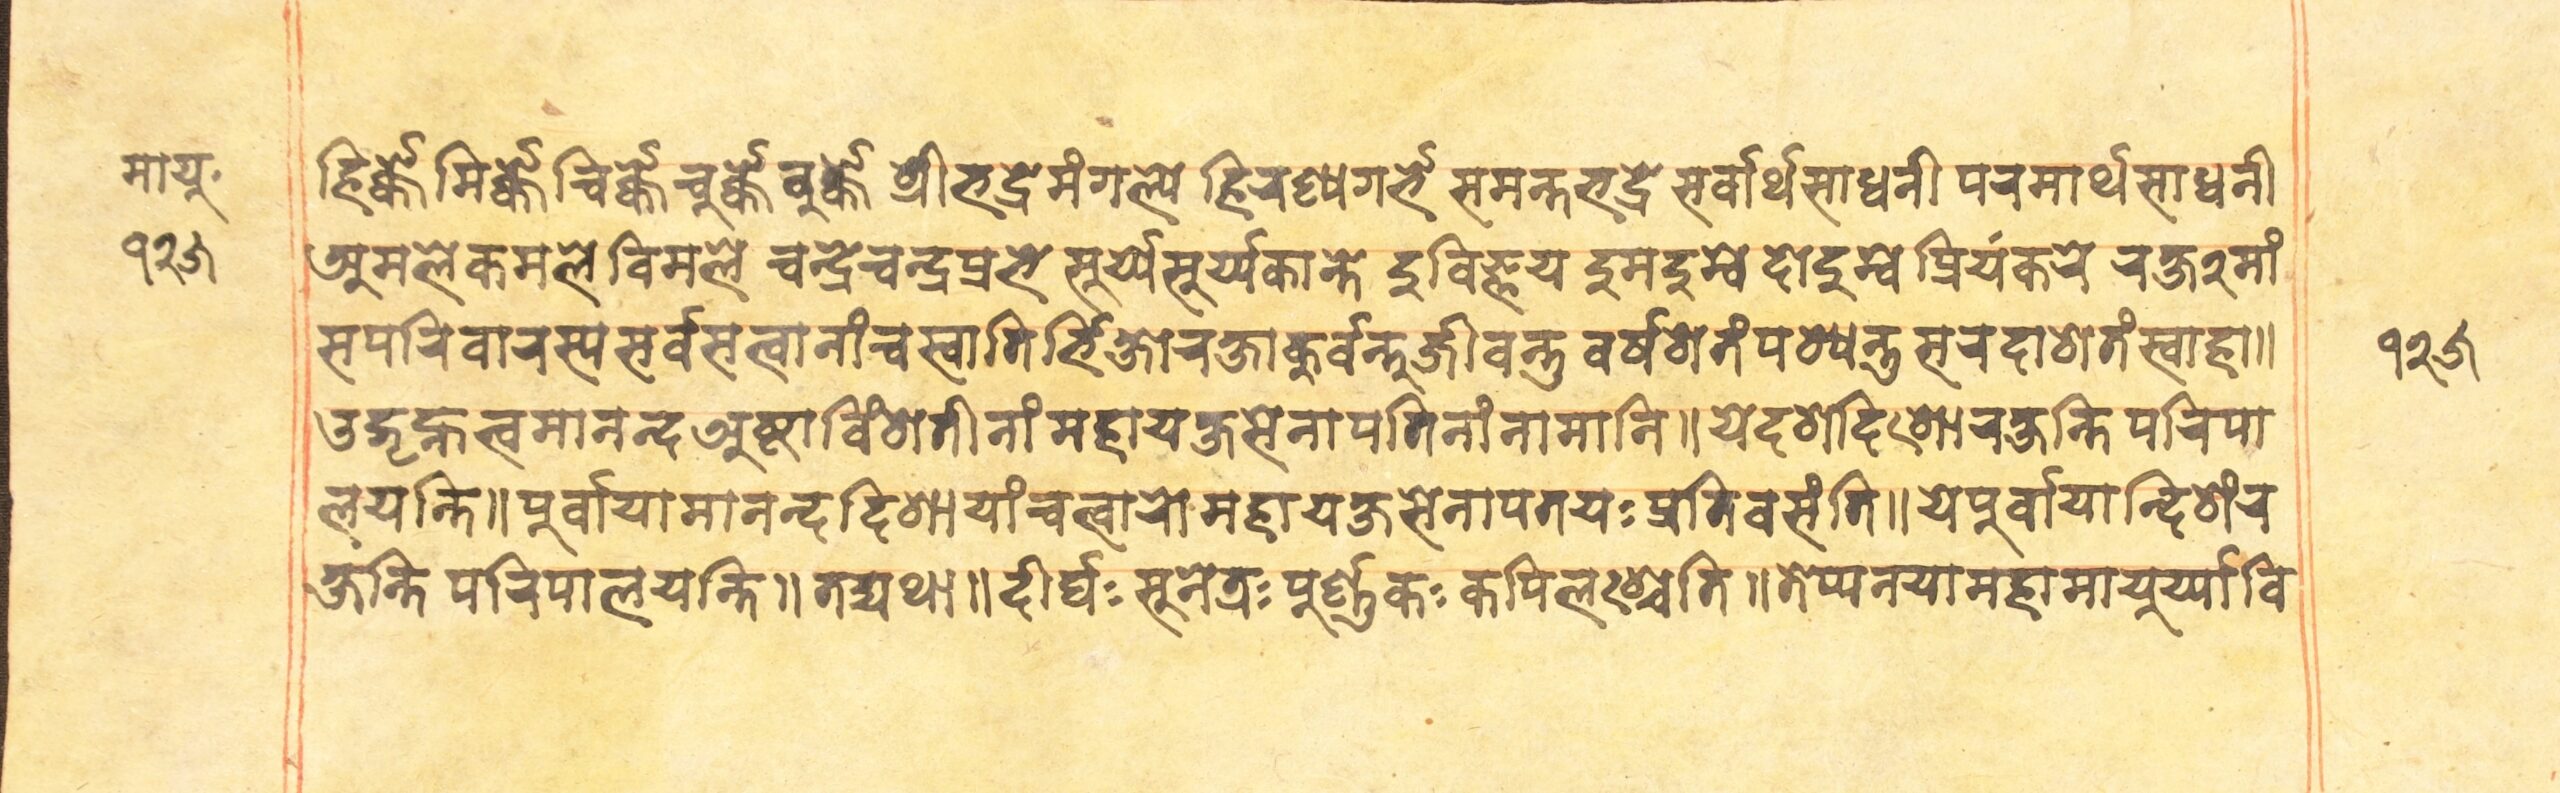 मायु॰
हिर्क्के मिर्क्के चिर्क्के चुर्क्के वुर्क्के श्रीभद्रे मंगल्ये हिरण्यगर्भे समन्तभद्रे सर्वार्थसाधनी परमार्थसाधनी
अमले कमले विमले चन्द्रे चन्द्रप्रभे सूर्य्ये सूर्य्यकान्ते दुविज्ञेय दुमदुम्बे दोदुम्बे प्रियंकरे रक्ष२मां
सपरिवारस्य सर्वसत्वानांच स्वातिर्भिक्षो रक्षाकुर्वन्तु जीवन्तु वर्षशतं पश्यन्तु सरदाशतं स्वाहा॥
उद्गृह्नत्वमानन्द अष्टाविंशतीनां महायक्षसेनापतिनां नामानि॥ ये दशदिशो रक्षन्ति परिपा
लयन्ति॥ पूर्वायामानन्द दिशायां चत्वारो महायक्षसेनापतयः प्रतिवसंति॥ ये पूर्वायान्दिशं र
क्षन्ति परिपालयन्ति॥ तद्यथा॥ दीर्घः सुनेत्रः पूर्ण्णकः कपिलश्चेति॥ तेप्यनया महामायुर्य्या वि